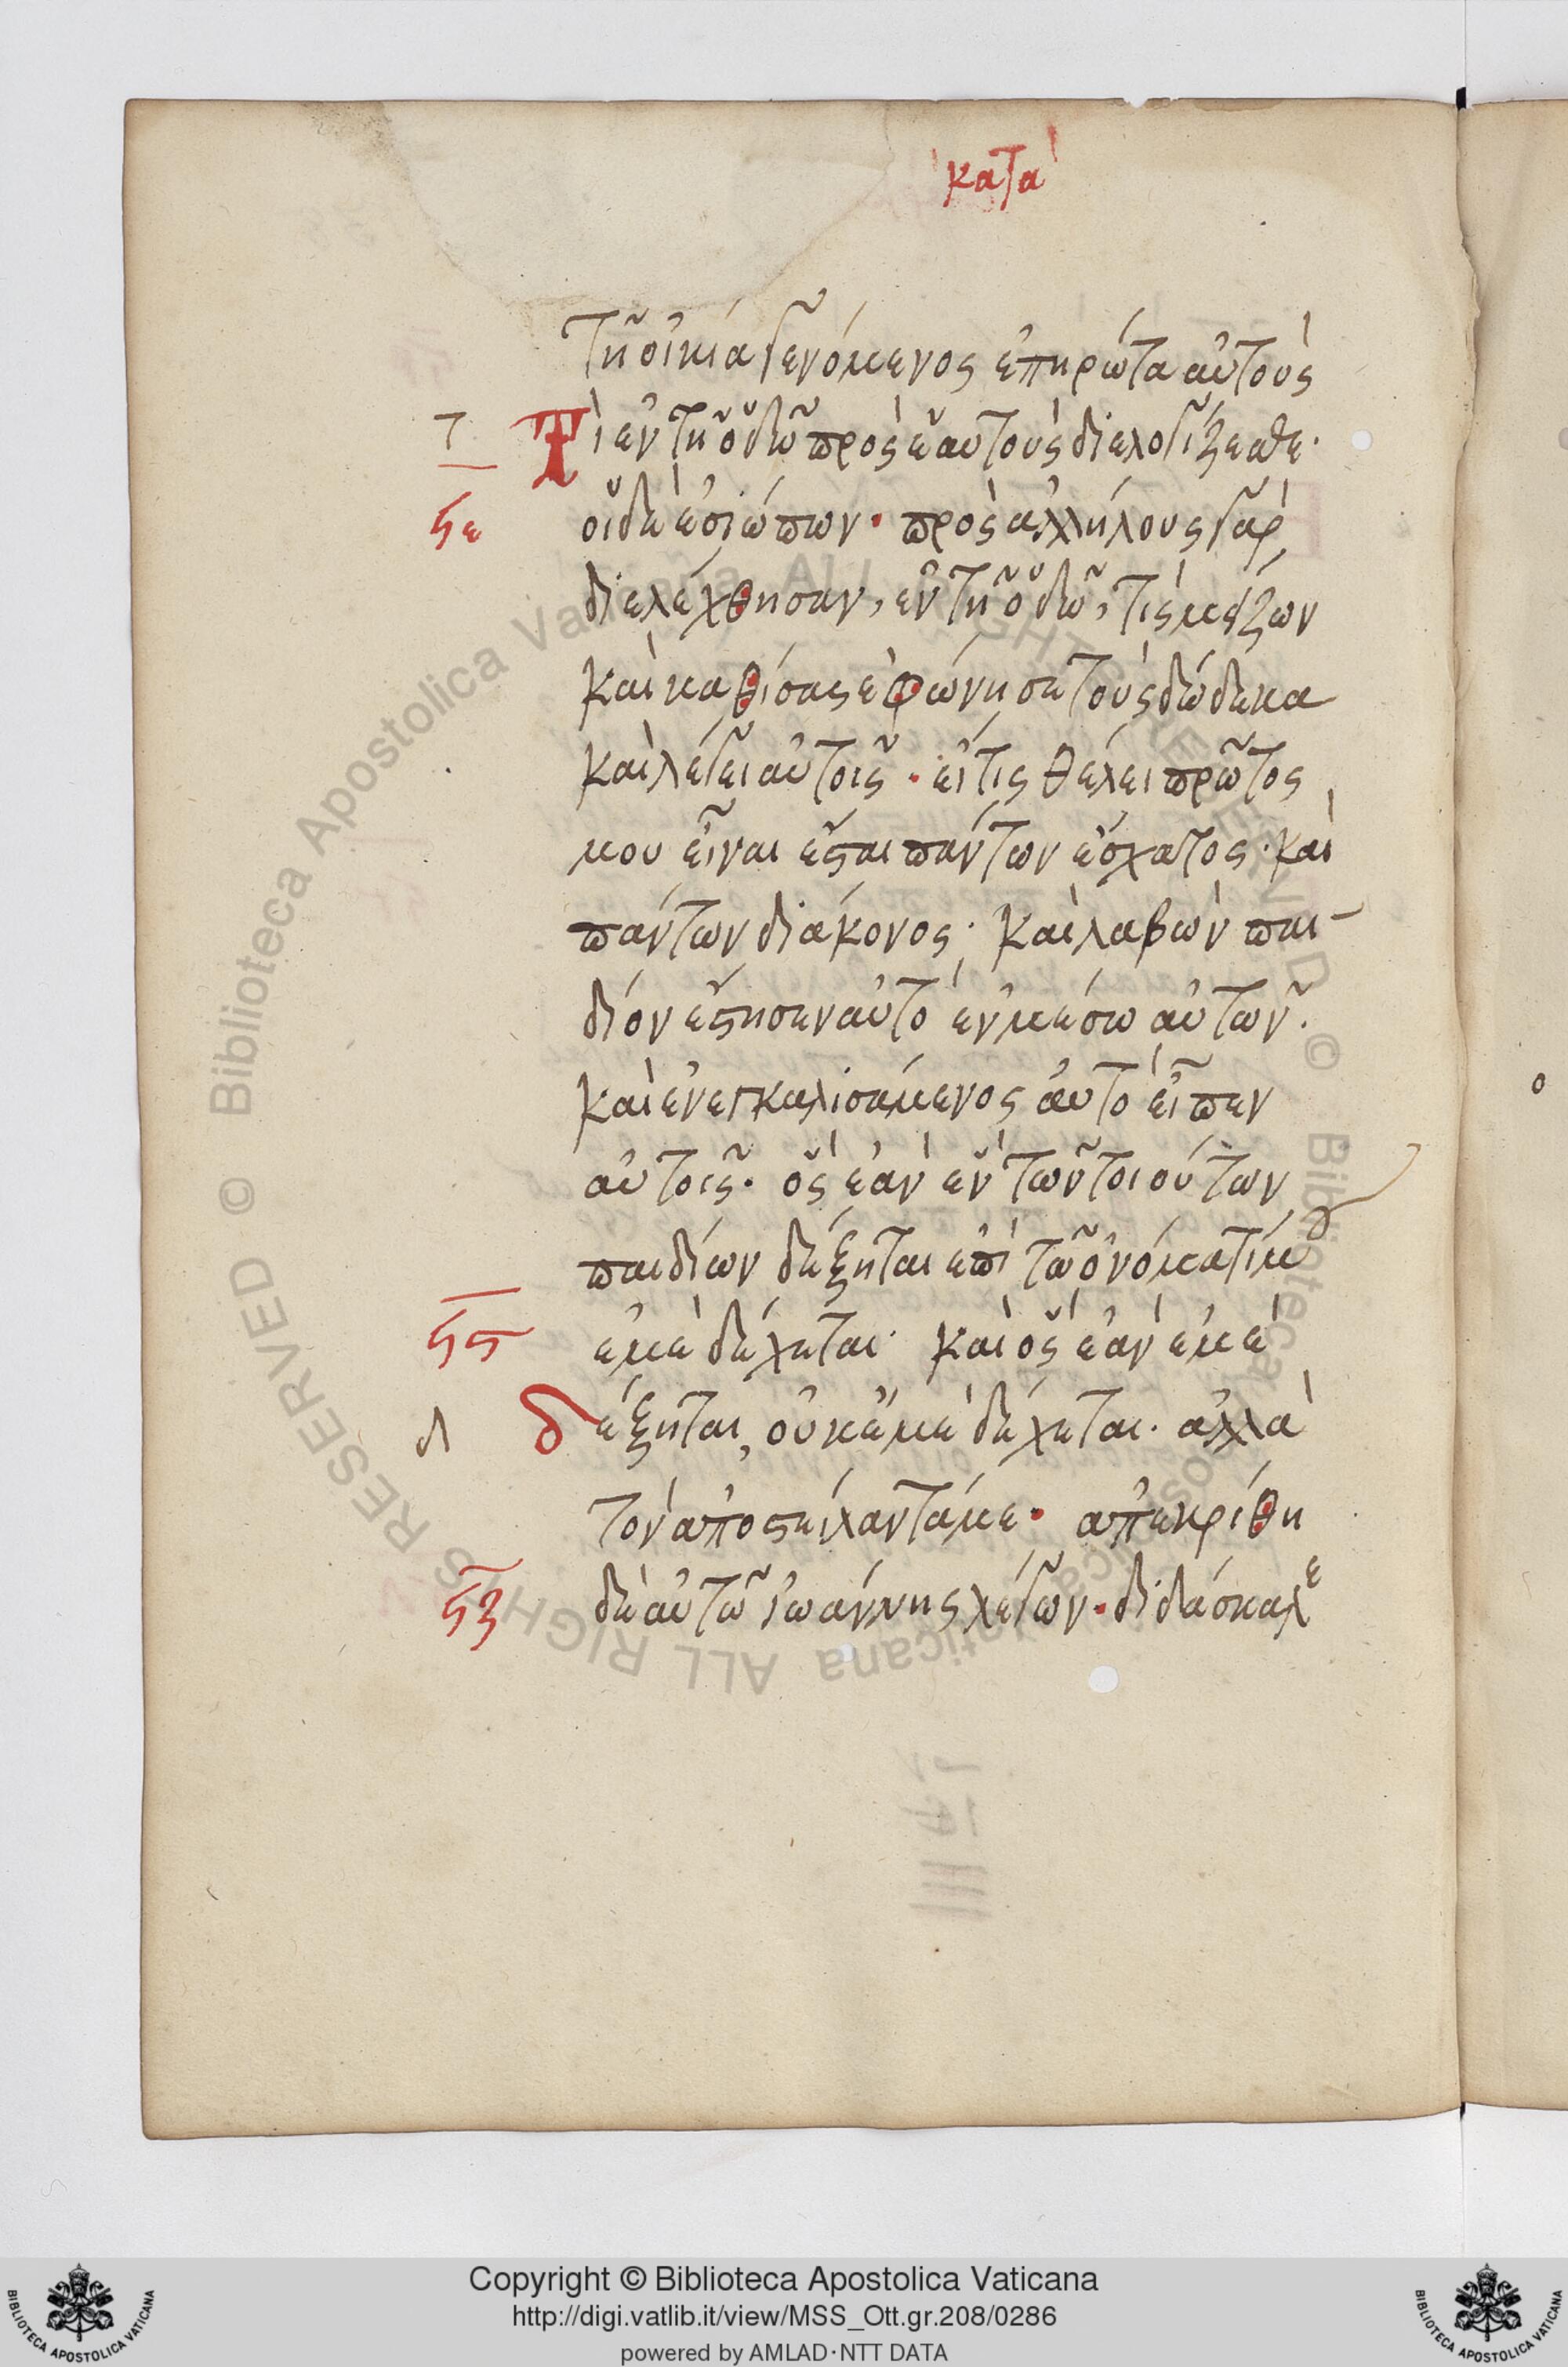 κατὰ
τῆ οἰκία γενόμενος ἐπηρώτα αὐτοὺς
τ Τὶ ἐν τῆ ὁδῶ πρὸς ἑαυτοὺς διελογίζεσθε·
ϟε οἱ δὲ ἐσιώπων· πρὸς ἀλλήλους γὰρ
διελέχθησαν, ἐν τῆ ὁδῶ, τὶς μείζων
καὶ καθίσας ἐφώνησε τοὺς δώδεκα
καὶ λέγει αὐτοῖς· εἴ τις θέλει πρῶτος
μου εἶναι ἔσται πάντων ἔσχατος· καὶ
πάντων διάκονος· καὶ λαβὼν παι-
δίον ἔστησεν αὐτὸ ἐν μέσω αὐτῶν·
καὶ ἐνεγκαλισάμενος αὐτὸ εἶπεν
αὐτοῖς· ὃς ἐὰν ἓν τῶν τοιούτων
παιδίων δέξηται ἐπὶ τῶ ὀνόματί μου
ϟϛ ἐμὲ δέχεται· καὶ ὃς ἐὰν ἐμὲ
δ δέξηται, οὐκ ἐμὲ δέχεται· ἀλλὰ
τὸν ἀποστείλαντά με· ἀπεκρίθη
ϟζ δὲ αὐτῶ ἰωάννης λέγων· διδάσκαλε
© Biblioteca Apostolica Vaticana ALL RIGHTS RESERVED © Biblioteca Apostolica Vaticana ALL RIGHTS RESERVED
Copyright © Biblioteca Apostolica Vaticana
http://digi.vatlib.it/view/MSS_Ott.gr.208/0286
powered by AMLAD·NTT DATA
BIBLIOTECA APOSTOLICA VATICANA
BIBLIOTECA APOSTOLICA VATICANA